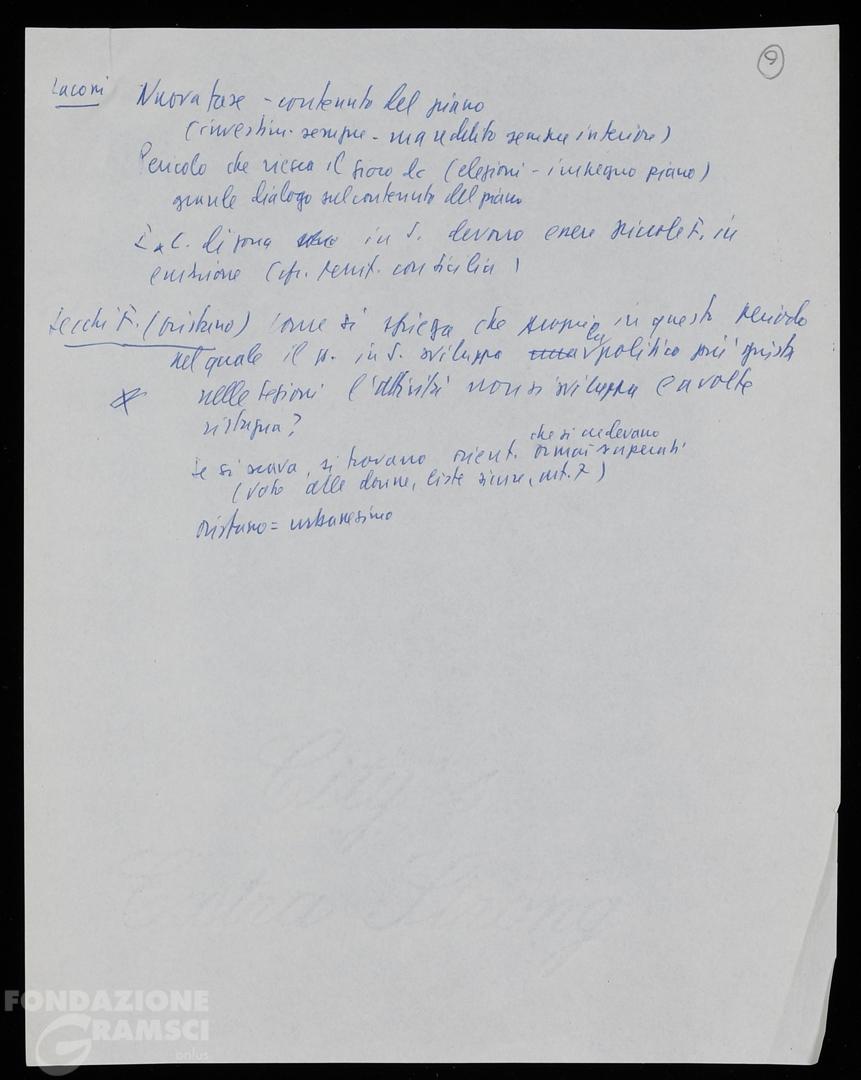 9
Laconi Nuova fase - contenuto del piano
(investim. sempre - ma reddito sempre inferiore)
Pericolo che riesca il gioco dc (elezioni - impegno piano)
grande dialogo sul contenuto del piano
di zona in S. devono essere piccole F. in
emissione (cfr. con Sicilia!
F. (Oristano) come si spiega che proprio in questo periodo
nel quale il p. in S. sviluppa la politica più giusta
nelle sezioni l'attività non si sviluppa e a volte
ristagna?
Se si scava, si trovano orient. che si credevano
ormai superati
(voto alle donne, liste sicure, art. 7)
Oristano = urbanesimo
City's
Extra Strong
FONDAZIONE
GRAMSCI
onlus